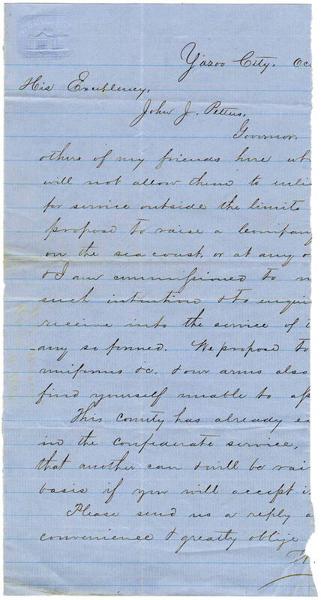 Yazoo City. Oc
His Excellency,
John J. Pettus,
Governor.
others of my friends here wh
will not allow them to enlis
for service outside the limits
propose to raise a Company
on the sea coast, or at any o
& I am commissioned to m
such intention & to enquire
receive into the service of
any so formed. We propose to
uniforms &c. & our arms also
find yourself unable to
This county has already
in the Confederate service,
that another can & will be rai
basis if you will accept i
Please send us a reply a
convenience & greatly oblige